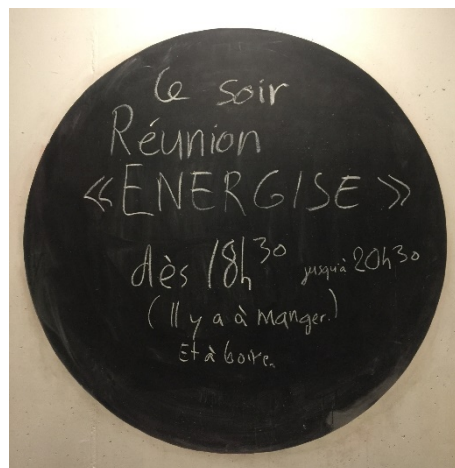 Ce soir
Réunion
«ENERGISE»
dès 18h30 jusqu'à 20h30
(Il y a à manger.)
Et à boire.